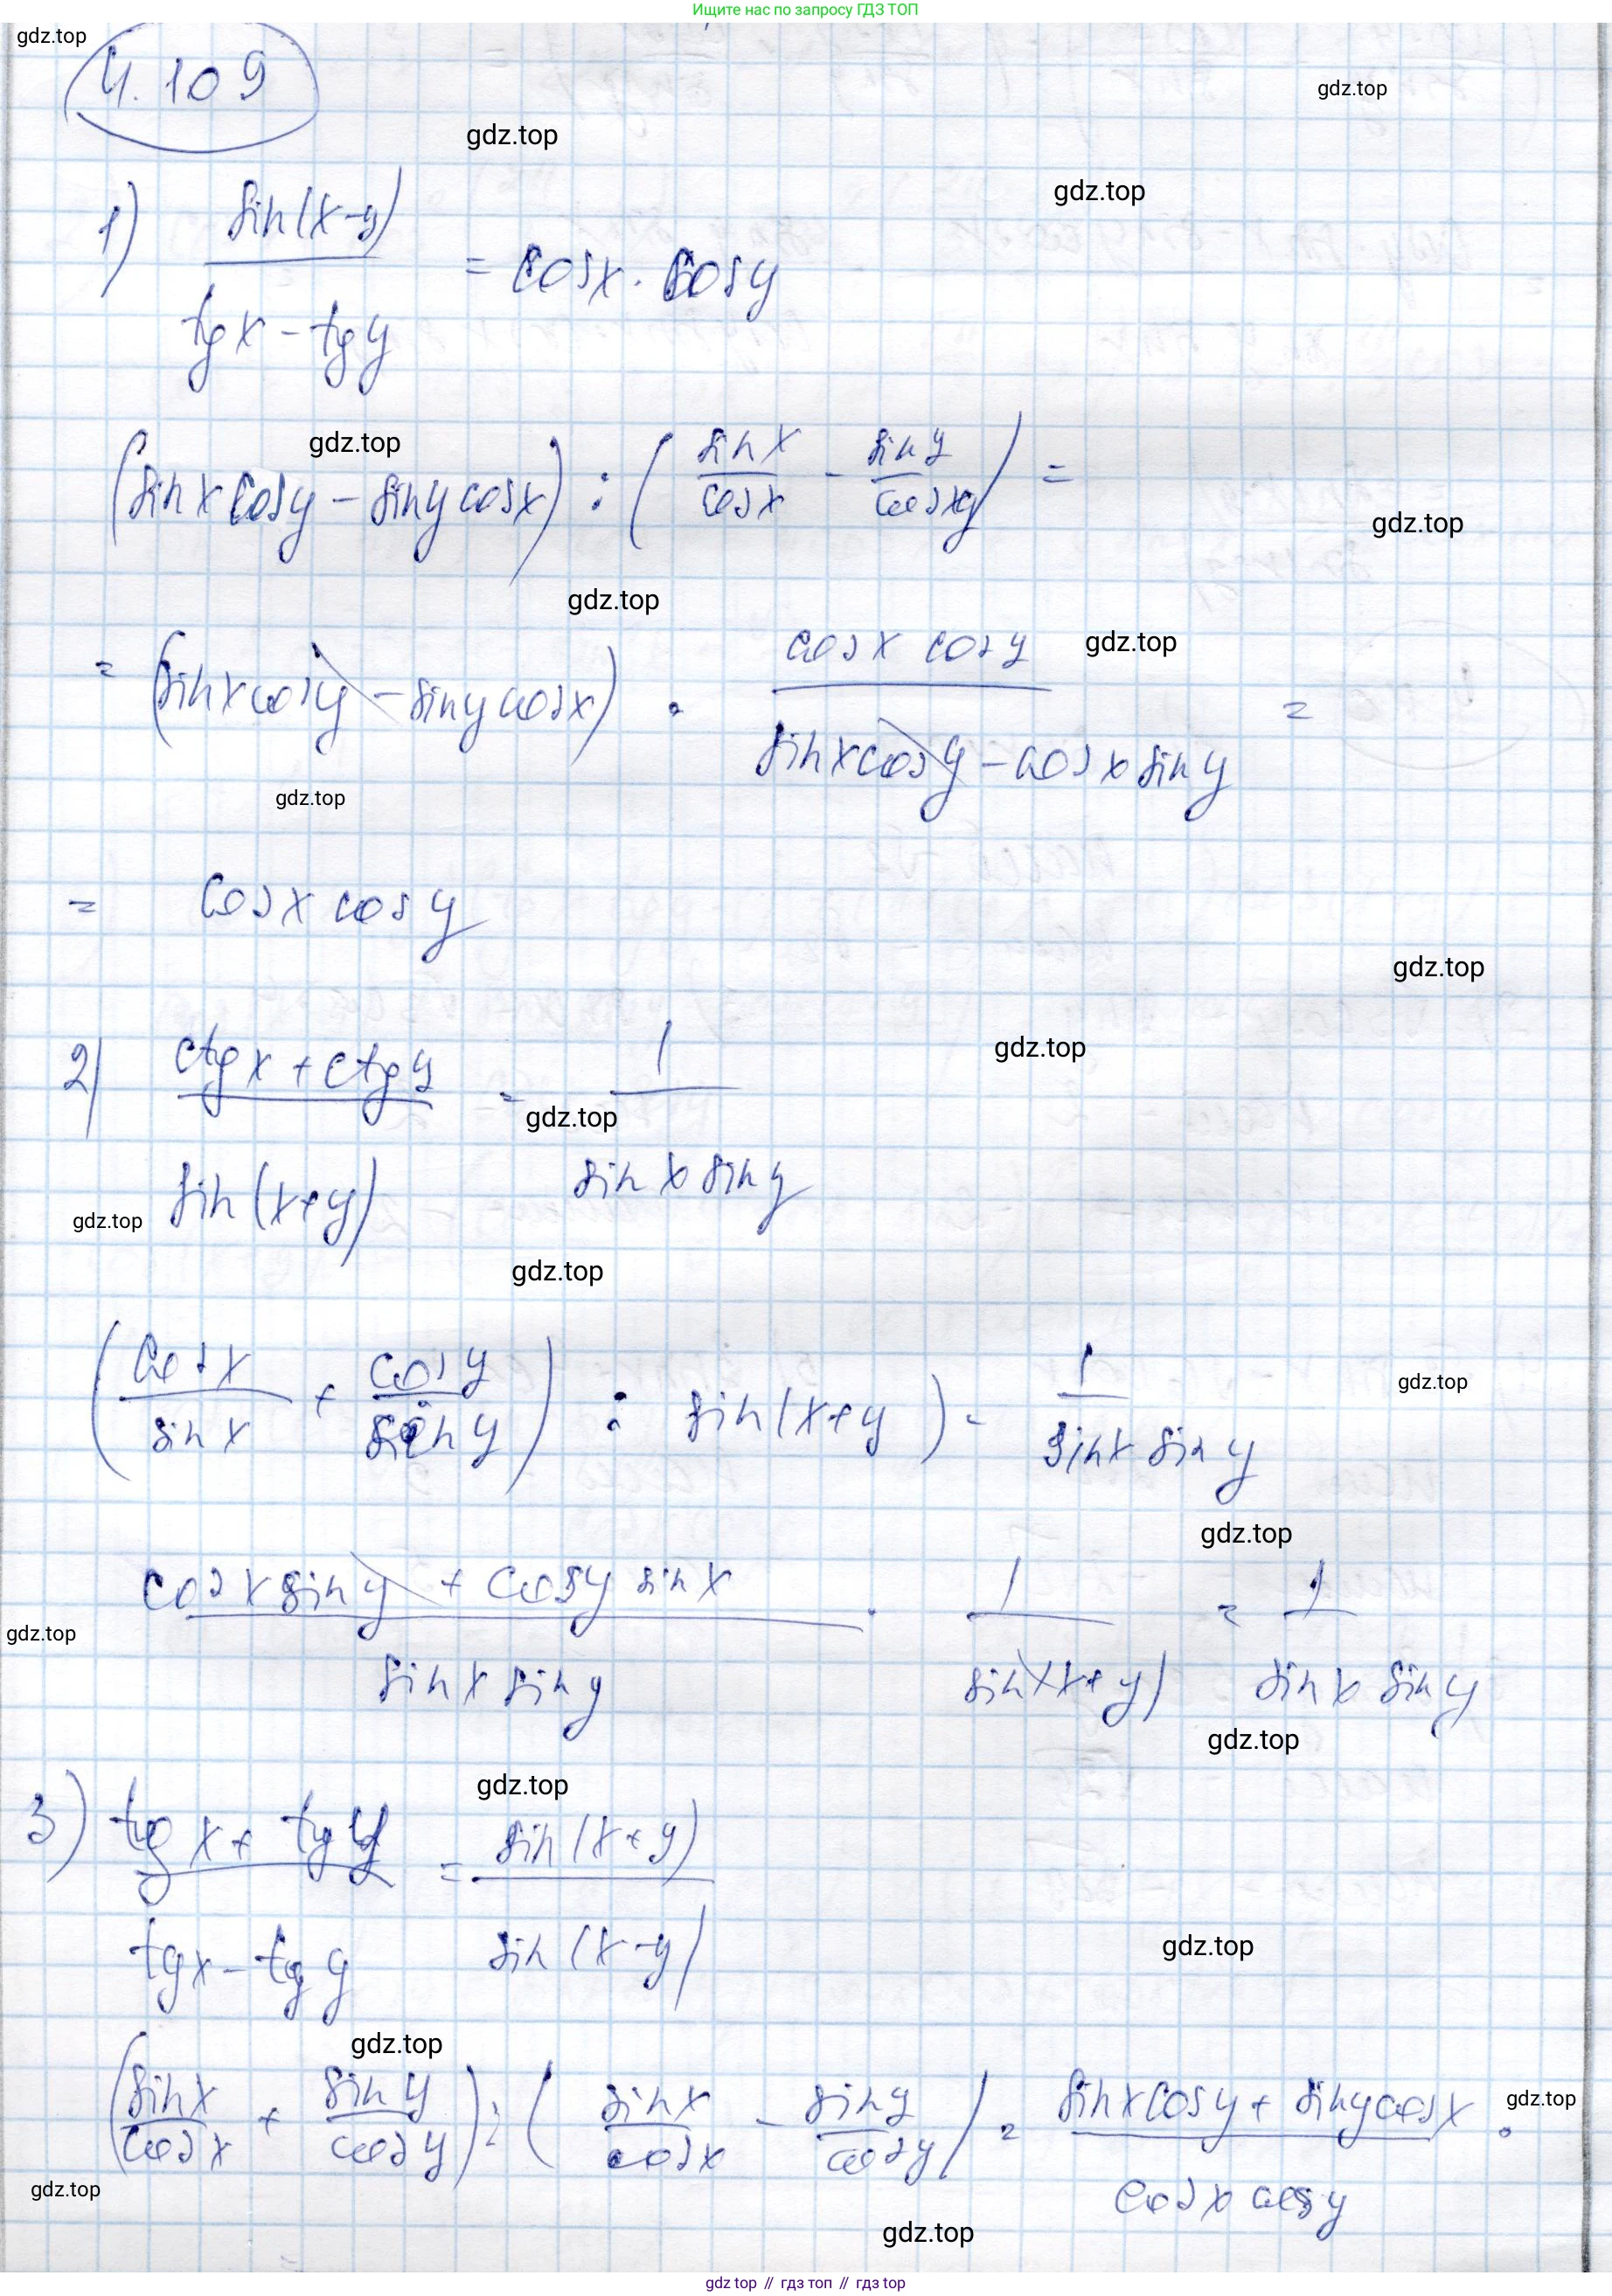 Ищите нас по запросу ГДЗ ТОП
gdz.top
4.109
gdz.top
gdz.top
gdz.top
1) sin(x-y) / (tg x - tg y) = cosx · cosy
gdz.top
(sin x cosy - siny cosx) : (sin x / cos x - sin y / cos y) =
gdz.top
gdz.top
= (sin x cosy - siny cosx) · cosx cosy / (sinx cosy - cosx siny) =
gdz.top
gdz.top
= cosx cosy
gdz.top
2) (ctg x + ctg y) / sin(x+y) = 1 / (sin x sin y)
gdz.top
gdz.top
gdz.top
gdz.top
(cos x / sin x + cos y / sin y) : sin(x+y) = 1 / (sinx sin y)
gdz.top
gdz.top
(cosx siny + cosy sin x) / (sin x sin y) · 1 / sin(x+y) = 1 / (sin x sin y)
gdz.top
gdz.top
3) (tg x + tg y) / (tgx - tg y) = sin(x+y) / sin(x-y)
gdz.top
gdz.top
gdz.top
(sin x / cos x + sin y / cos y) : (sin x / cos x - sin y / cos y) = (sinx cosy + siny cosx) / (cosx cosy) ·
gdz.top
gdz.top
gdz.top
gdz top // гдз топ // гдз top